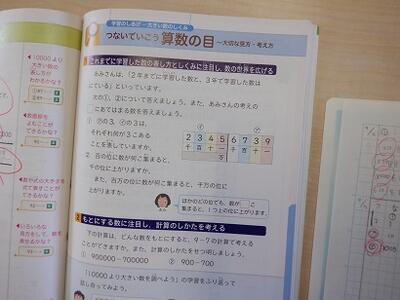 学習のしるべ－大きい数のしくみ
つないでいこう 算数の目 ～大切な見方・考え方
1 これまでに学習した数の表し方としくみに注目し、数の世界を広げる
あみさんは、「2年までに学習した数と、3年で学習した数は
にている」といっています。
次の①、②について答えましょう。また、あみさんの考えの
□にあてはまる数を答えましょう。
① ⑦の3、④の3は、
それぞれ何が3こある
ことを表していますか。
2 3 4 5 6 7 3 9
千 百 十 一 千 百 十 一
万
② 百の位に数が何こ集まると、
千の位に上がりますか。
また、百万の位に数が何こ集まると、千万の位に
上がりますか。
ほかのどの位でも、数が□こ
集まると、1つ上の位に上がります。
2 もとにする数に注目し、計算のしかたを考える
下の計算は、どんな数をもとにすると、9－7の計算で考える
ことができますか。また、計算のしかたをせつ明しましょう。
① 900000－700000 ② 900－700
「10000より大きい数を調べよう」の学習をふり返って
話し合ってみよう。
10000より
大きい数の
表し方が
わかるかな?
数直線を
よむことが
できるかな?